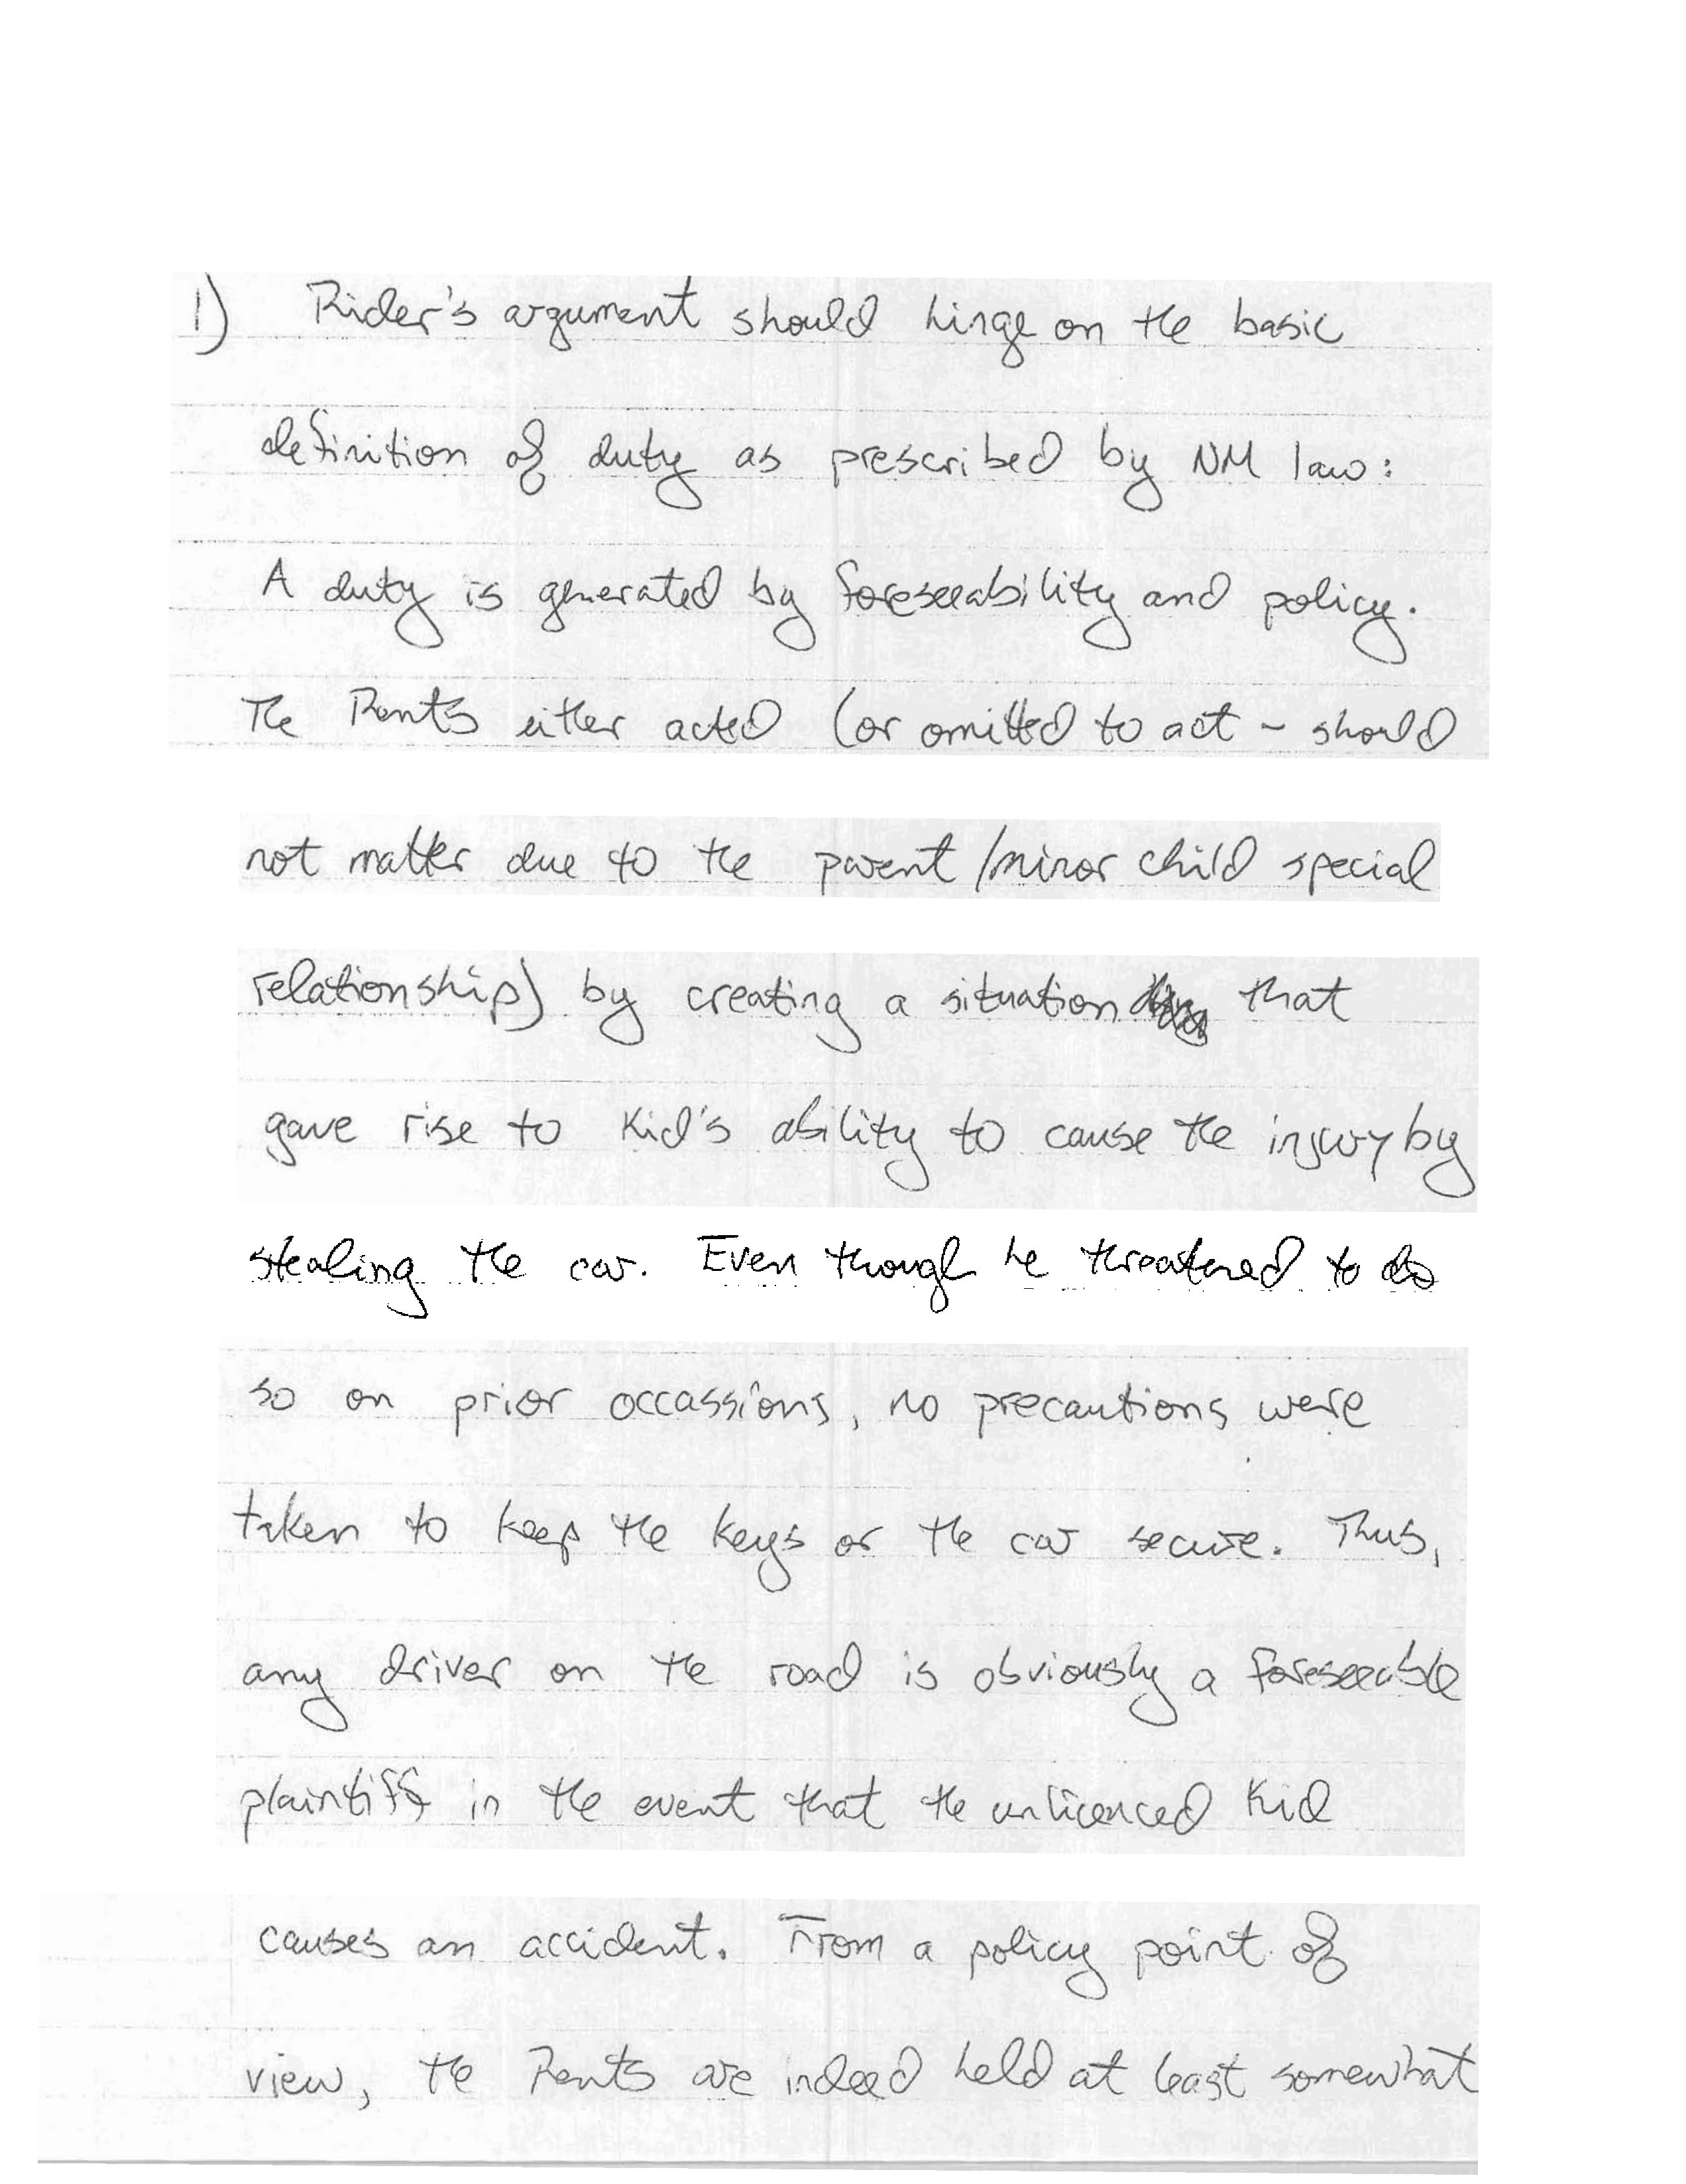 1) Rider's argument should hinge on the basic
definition of duty as prescribed by NM law:
A duty is generated by foreseeability and policy.
The Rents either acted (or omitted to act - should
not matter due to the parent/minor child special
relationship) by creating a situation that
gave rise to Kid's ability to cause the injury by
stealing the car. Even though he threatened to do
so on prior occassions, no precautions were
taken to keep the keys or the car secure. Thus,
any driver on the road is obviously a foreseeable
plaintiff in the event that the unlicenced Kid
causes an accident. From a policy point of
view, the Rents are indeed held at least somewhat